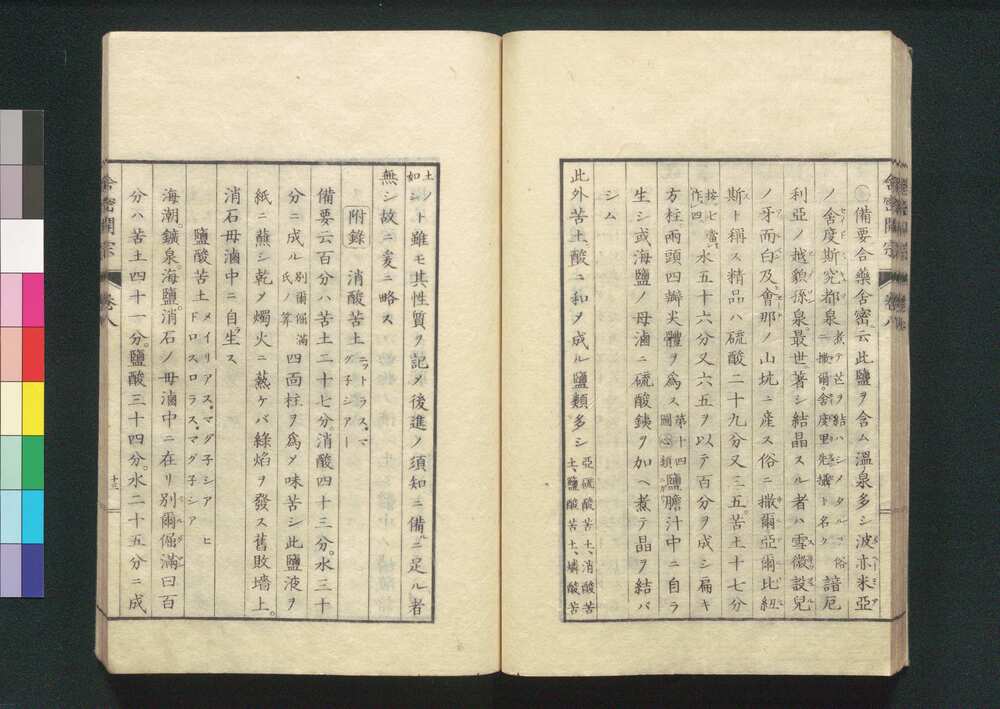 備要合藥舍密云此鹽ヲ含ム溫泉多シ波赤米亞
ノ舍度斯究都泉
煮テ芒ヲ結ハシメタル
一撒爾
舍度里先攝ト名ク
諳厄
利亞ノ越貌孫泉。最世著シ結晶スル者ハ雪微設兒
ノ牙而白及會那ノ山坑ニ產ス俗ニ撒爾亞爾比紐
斯ト稱ス精品ハ硫酸二十九分又三五。苦土十七分
水五十六分又六五ヲ以テ百分ヲ成シ扁キ
方柱兩頭四瓣尖體ヲ爲ス
第十四
圖
鹽膽汁中ニ自ラ
生シ或海鹽ノ母滷ニ硫酸銕ヲ加ヘ煮テ晶ヲ結バ
シム
此外苦土、酸ニ和メ成ル鹽類多シ
亞硫酸苦土、消酸苦
土、鹽酸苦土、燐酸苦
土ノ
如シ
ト雖モ其性質ヲ記メ後進ノ須知ニ備ニ足ル者
無シ故ニ爰ニ略ス
附錄 消酸苦土
ニットラス・マ
グ子シアー
備要云百分ハ苦土二十七分消酸四十三分。水三十
分ニ成ル
別爾倔滿
氏ノ算
四面柱ヲ爲メ味苦シ此鹽液ヲ
紙ニ蘸シ乾メ燭火ニ爇ケバ綠焰ヲ發ス舊敗墻上。
消石母滷中ニ自生ス
鹽酸苦土
メイリアス・マグ子シア ヒ
ドロスロラス・マグ子シア
海潮鑛泉海鹽。消石ノ母滷中ニ在リ別爾倔滿曰百
分ハ苦土四十一分。鹽酸三十四分。水二十五分ニ成
舍密開宗
卷八
十三